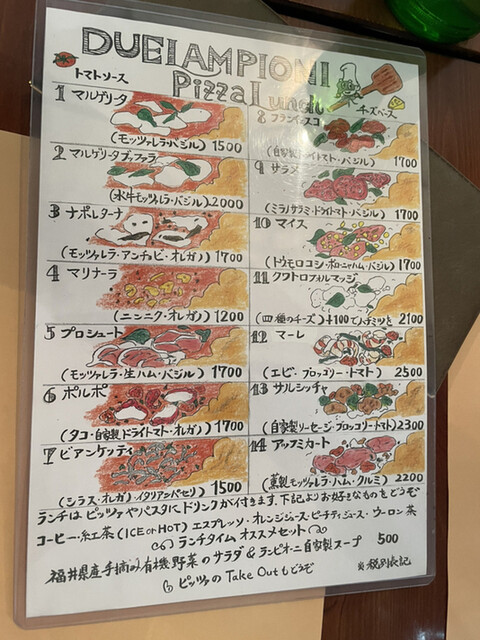 DUE LAMPIONI
Pizza Lunch
トマトソース
1 マルゲリータ
(モッツァレラ・バジル) 1500
2 マルゲリータブッファラ
(水牛モッツァレラ・バジル) 2000
3 ナポレターナ
(モッツァレラ・アンチョビ・オレガノ) 1700
4 マリナーラ
(ニンニク・オレガノ) 1200
5 プロシュート
(モッツァレラ・生ハム・バジル) 1700
6 ポルポ
(タコ・自家製ドライトマト・オレガノ) 1700
7 ビアンケッティ
(シラス・オレガノ・イタリアンパセリ) 1500
チーズベース
8 フランチェスコ
(自家製ドライトマト・バジル) 1700
9 サラメ
(ミラノサラミ・ドライトマト・バジル) 1700
10 マイス
(トウモロコシ・ボローニャハム・バジル) 1700
11 クワトロフォルマッジ
(四種のチーズ) +100でハチミツを 2100
12 マーレ
(エビ・ブロッコリー・トマト) 2500
13 サルシッチャ
(自家製ソーセージ・ブロッコリー・トマト) 2300
14 アッフミカート
(薫製モッツァレラ・ハム・クルミ) 2200
ランチは ピッツァやパスタにドリンクが付きます。下記よりお好きなものをどうぞ
コーヒー・紅茶(ICE or HOT) エスプレッソ・オレンジジュース・ピーチティジュース・ウーロン茶
ランチタイム オススメセット
福井県産手摘み有機野菜のサラダ & ランピオーニ自家製スープ 500
ピッツァの Take Out もどうぞ
※税別表記